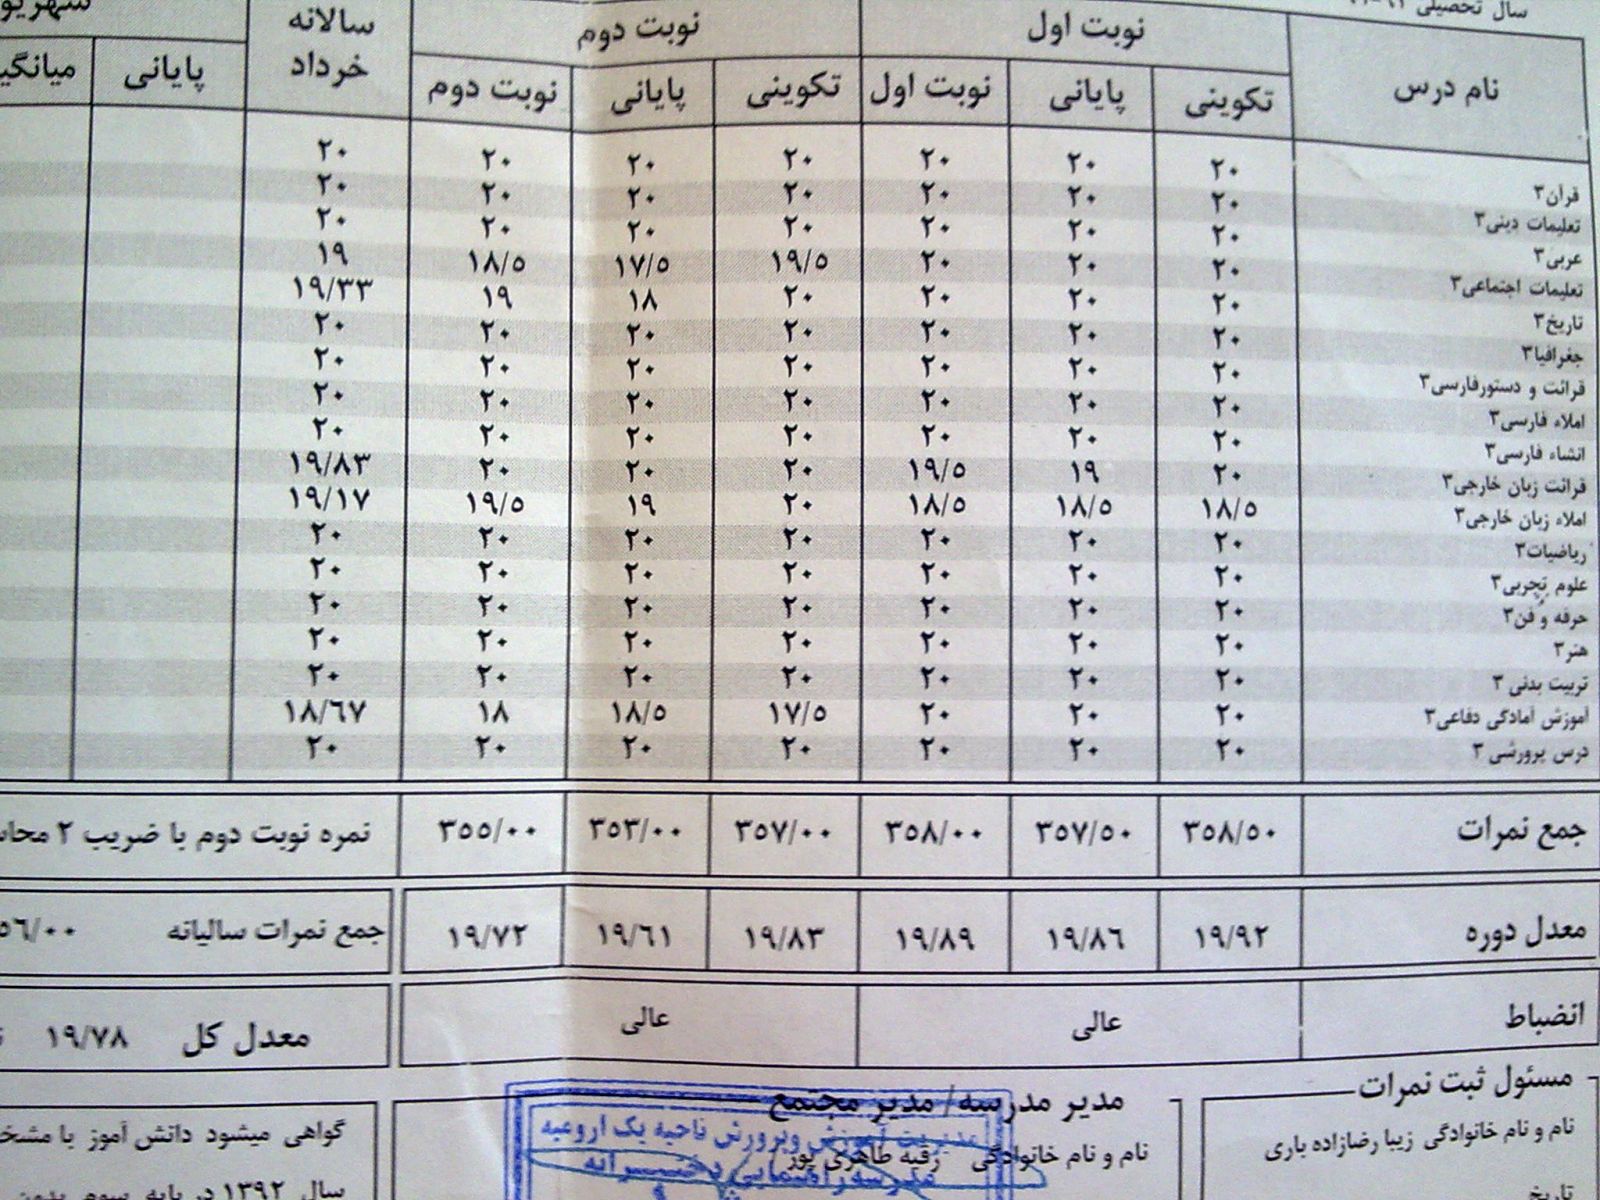 سال تحصیلی
نام درس نوبت اول نوبت دوم سالانه خرداد
تکوینی پایانی نوبت اول تکوینی پایانی نوبت دوم پایانی
قرآن۳ ۲۰ ۲۰ ۲۰ ۲۰ ۲۰ ۲۰ ۲۰
تعلیمات دینی۳ ۲۰ ۲۰ ۲۰ ۲۰ ۲۰ ۲۰ ۲۰
عربی۳ ۲۰ ۲۰ ۲۰ ۲۰ ۲۰ ۲۰ ۲۰
تعلیمات اجتماعی۳ ۲۰ ۲۰ ۲۰ ۱۹/۵ ۱۷/۵ ۱۸/۵ ۱۹
تاریخ۳ ۲۰ ۲۰ ۲۰ ۲۰ ۱۸ ۱۹ ۱۹/۳۳
جغرافیا۳ ۲۰ ۲۰ ۲۰ ۲۰ ۲۰ ۲۰ ۲۰
قرائت و دستورفارسی۳ ۲۰ ۲۰ ۲۰ ۲۰ ۲۰ ۲۰ ۲۰
املاء فارسی۳ ۲۰ ۲۰ ۲۰ ۲۰ ۲۰ ۲۰ ۲۰
انشاء فارسی۳ ۲۰ ۲۰ ۲۰ ۲۰ ۲۰ ۲۰ ۲۰
قرائت زبان خارجی۳ ۲۰ ۱۹ ۱۹/۵ ۲۰ ۲۰ ۲۰ ۱۹/۸۳
املاء زبان خارجی۳ ۱۸/۵ ۱۸/۵ ۱۸/۵ ۲۰ ۱۹ ۱۹/۵ ۱۹/۱۷
ریاضیات۳ ۲۰ ۲۰ ۲۰ ۲۰ ۲۰ ۲۰ ۲۰
علوم تجربی۳ ۲۰ ۲۰ ۲۰ ۲۰ ۲۰ ۲۰ ۲۰
حرفه و فن۳ ۲۰ ۲۰ ۲۰ ۲۰ ۲۰ ۲۰ ۲۰
هنر۳ ۲۰ ۲۰ ۲۰ ۲۰ ۲۰ ۲۰ ۲۰
تربیت بدنی ۳ ۲۰ ۲۰ ۲۰ ۲۰ ۲۰ ۲۰ ۲۰
آموزش آمادگی دفاعی۳ ۲۰ ۲۰ ۲۰ ۱۷/۵ ۱۸/۵ ۱۸ ۱۸/۶۷
درس پرورشی ۳ ۲۰ ۲۰ ۲۰ ۲۰ ۲۰ ۲۰ ۲۰
جمع نمرات ۳۵۸/۵۰ ۳۵۷/۵۰ ۳۵۸/۰۰ ۳۵۷/۰۰ ۳۵۳/۰۰ ۳۵۵/۰۰ نمره نوبت دوم با ضریب ۲
معدل دوره ۱۹/۹۲ ۱۹/۸۶ ۱۹/۸۹ ۱۹/۸۳ ۱۹/۶۱ ۱۹/۷۲ جمع نمرات سالیانه
انضباط عالی عالی معدل کل ۱۹/۷۸
مسئول ثبت نمرات
نام و نام خانوادگی زیبا رضازاده باری
تاریخ
مدیر مدرسه/ مدیر مجتمع
نام و نام خانوادگی رقیه طاهری پور
مدیریت آموزش وپرورش ناحیه یک ارومیه
مدرسه راهنمایی دخترانه
گواهی میشود دانش آموز با
سال ۱۳۹۲ در پایه سوم بدون